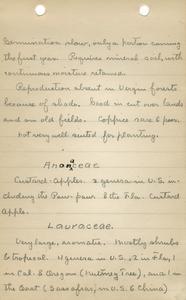 Germination slow, only a portion coming
the first year. Requires mineral soil, with
continuous moisture retained.
Reproduction absent in Virgin forests
because of shade. Good in cut over lands
and on old fields. Coppice rare & poor.
Not very well suited for planting.
Anonaceae
Custard-Apples. 2 genera in U.S. in-
cluding its Paw-paw & the Fla. Custard
Apple.
Lauraceae.
Very large, aromatic. Mostly shrubs
& tropical. 4 genera in U.S., 2 in Fla., 1
in Cal. & Oregon (Nutmeg Tree), and 1 in
the East (Sassafras, in U.S. & China)